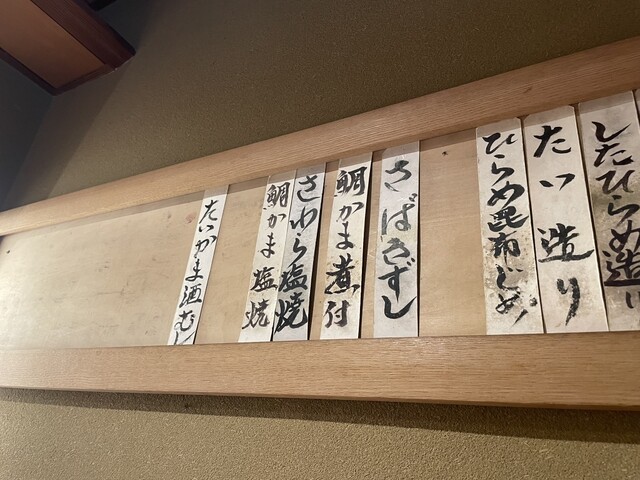 したひらめ造り
たい造り
ひらめ昆布じめ
さばきずし
鯛かま煮付
さわら塩焼
鯛かま塩焼
たいかま酒むし